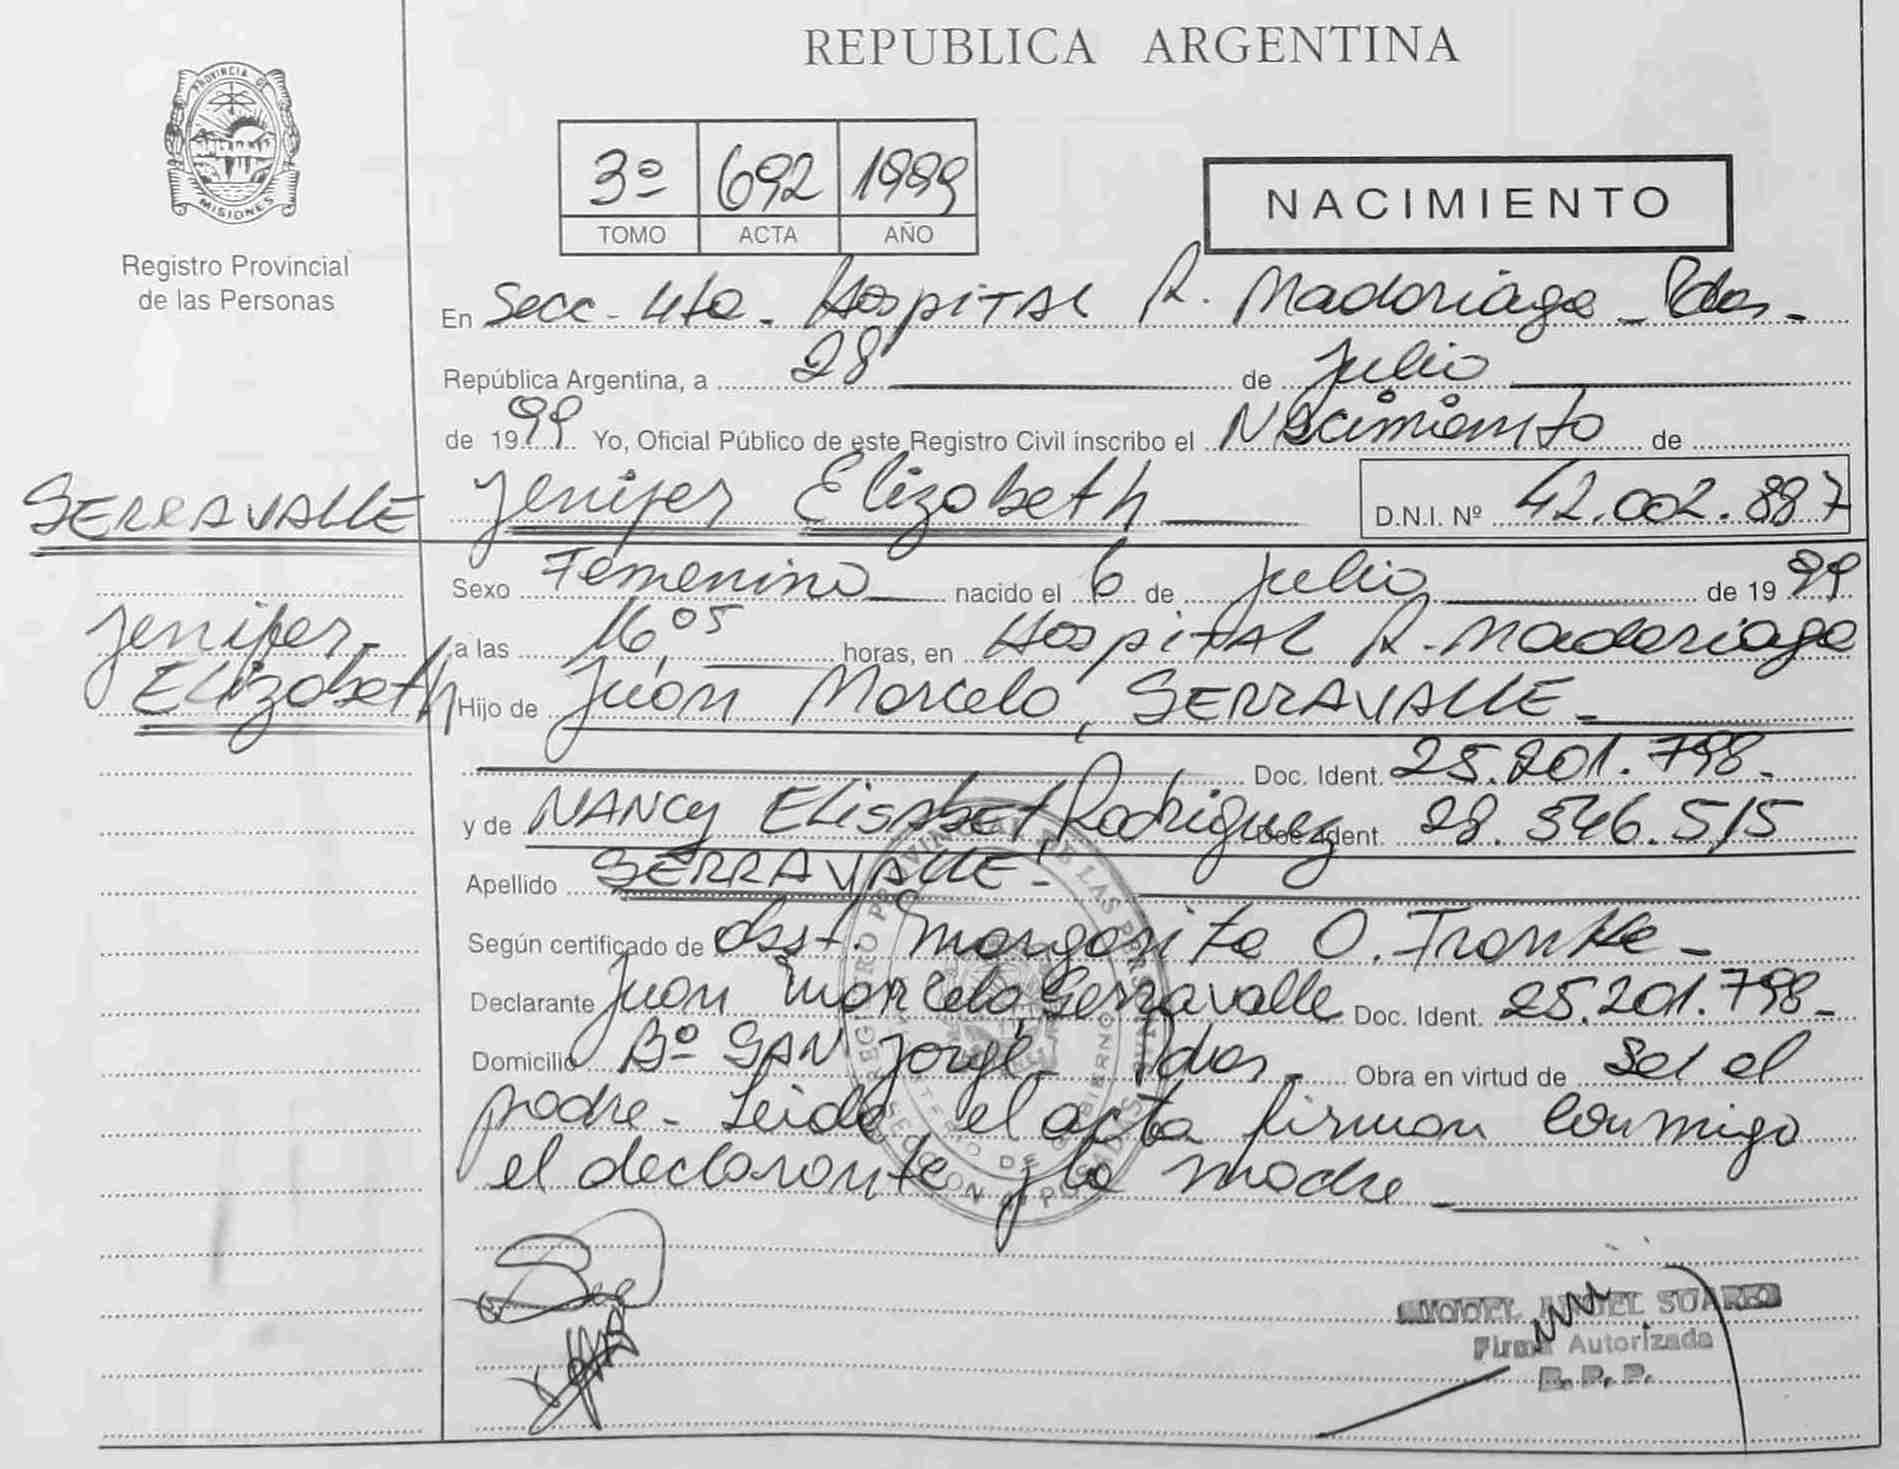 REPUBLICA ARGENTINA
PROVINCIA DE
MISIONES
Registro Provincial
de las Personas
3º 692 1999
TOMO ACTA AÑO
NACIMIENTO
En Secc - 4ta - Hospital R. Madariaga - Pdas -
República Argentina, a 28 de Julio
de 1999 Yo, Oficial Público de este Registro Civil inscribo el Nacimiento de
SERRAVALLE Jenifer Elizabeth D.N.I. Nº 42.002.887
Sexo Femenino nacido el 6 de Julio de 1999
Jenifer a las 16,05 horas, en Hospital R. Madariaga
Elizabeth Hijo de Juan Marcelo, SERRAVALLE -
Doc. Ident. 25.201.798 -
y de NANCY Elisabet Rodriguez Doc. Ident. 28.546.515
Apellido SERRAVALLE -
Según certificado de Obst. Margarita O.
Declarante Juan Marcelo Serravalle Doc. Ident. 25.201.798 -
Domicilio Bº SAN Jorge - Pdas - Obra en virtud de Ser el
padre - Leida el acta firman conmigo
el declarante y la madre
REGISTRO PROVINCIAL DE LAS PERSONAS
MINISTERIO DE GOBIERNO
SECCION POSADAS
SUAREZ
Firma Autorizada
R. P. P.